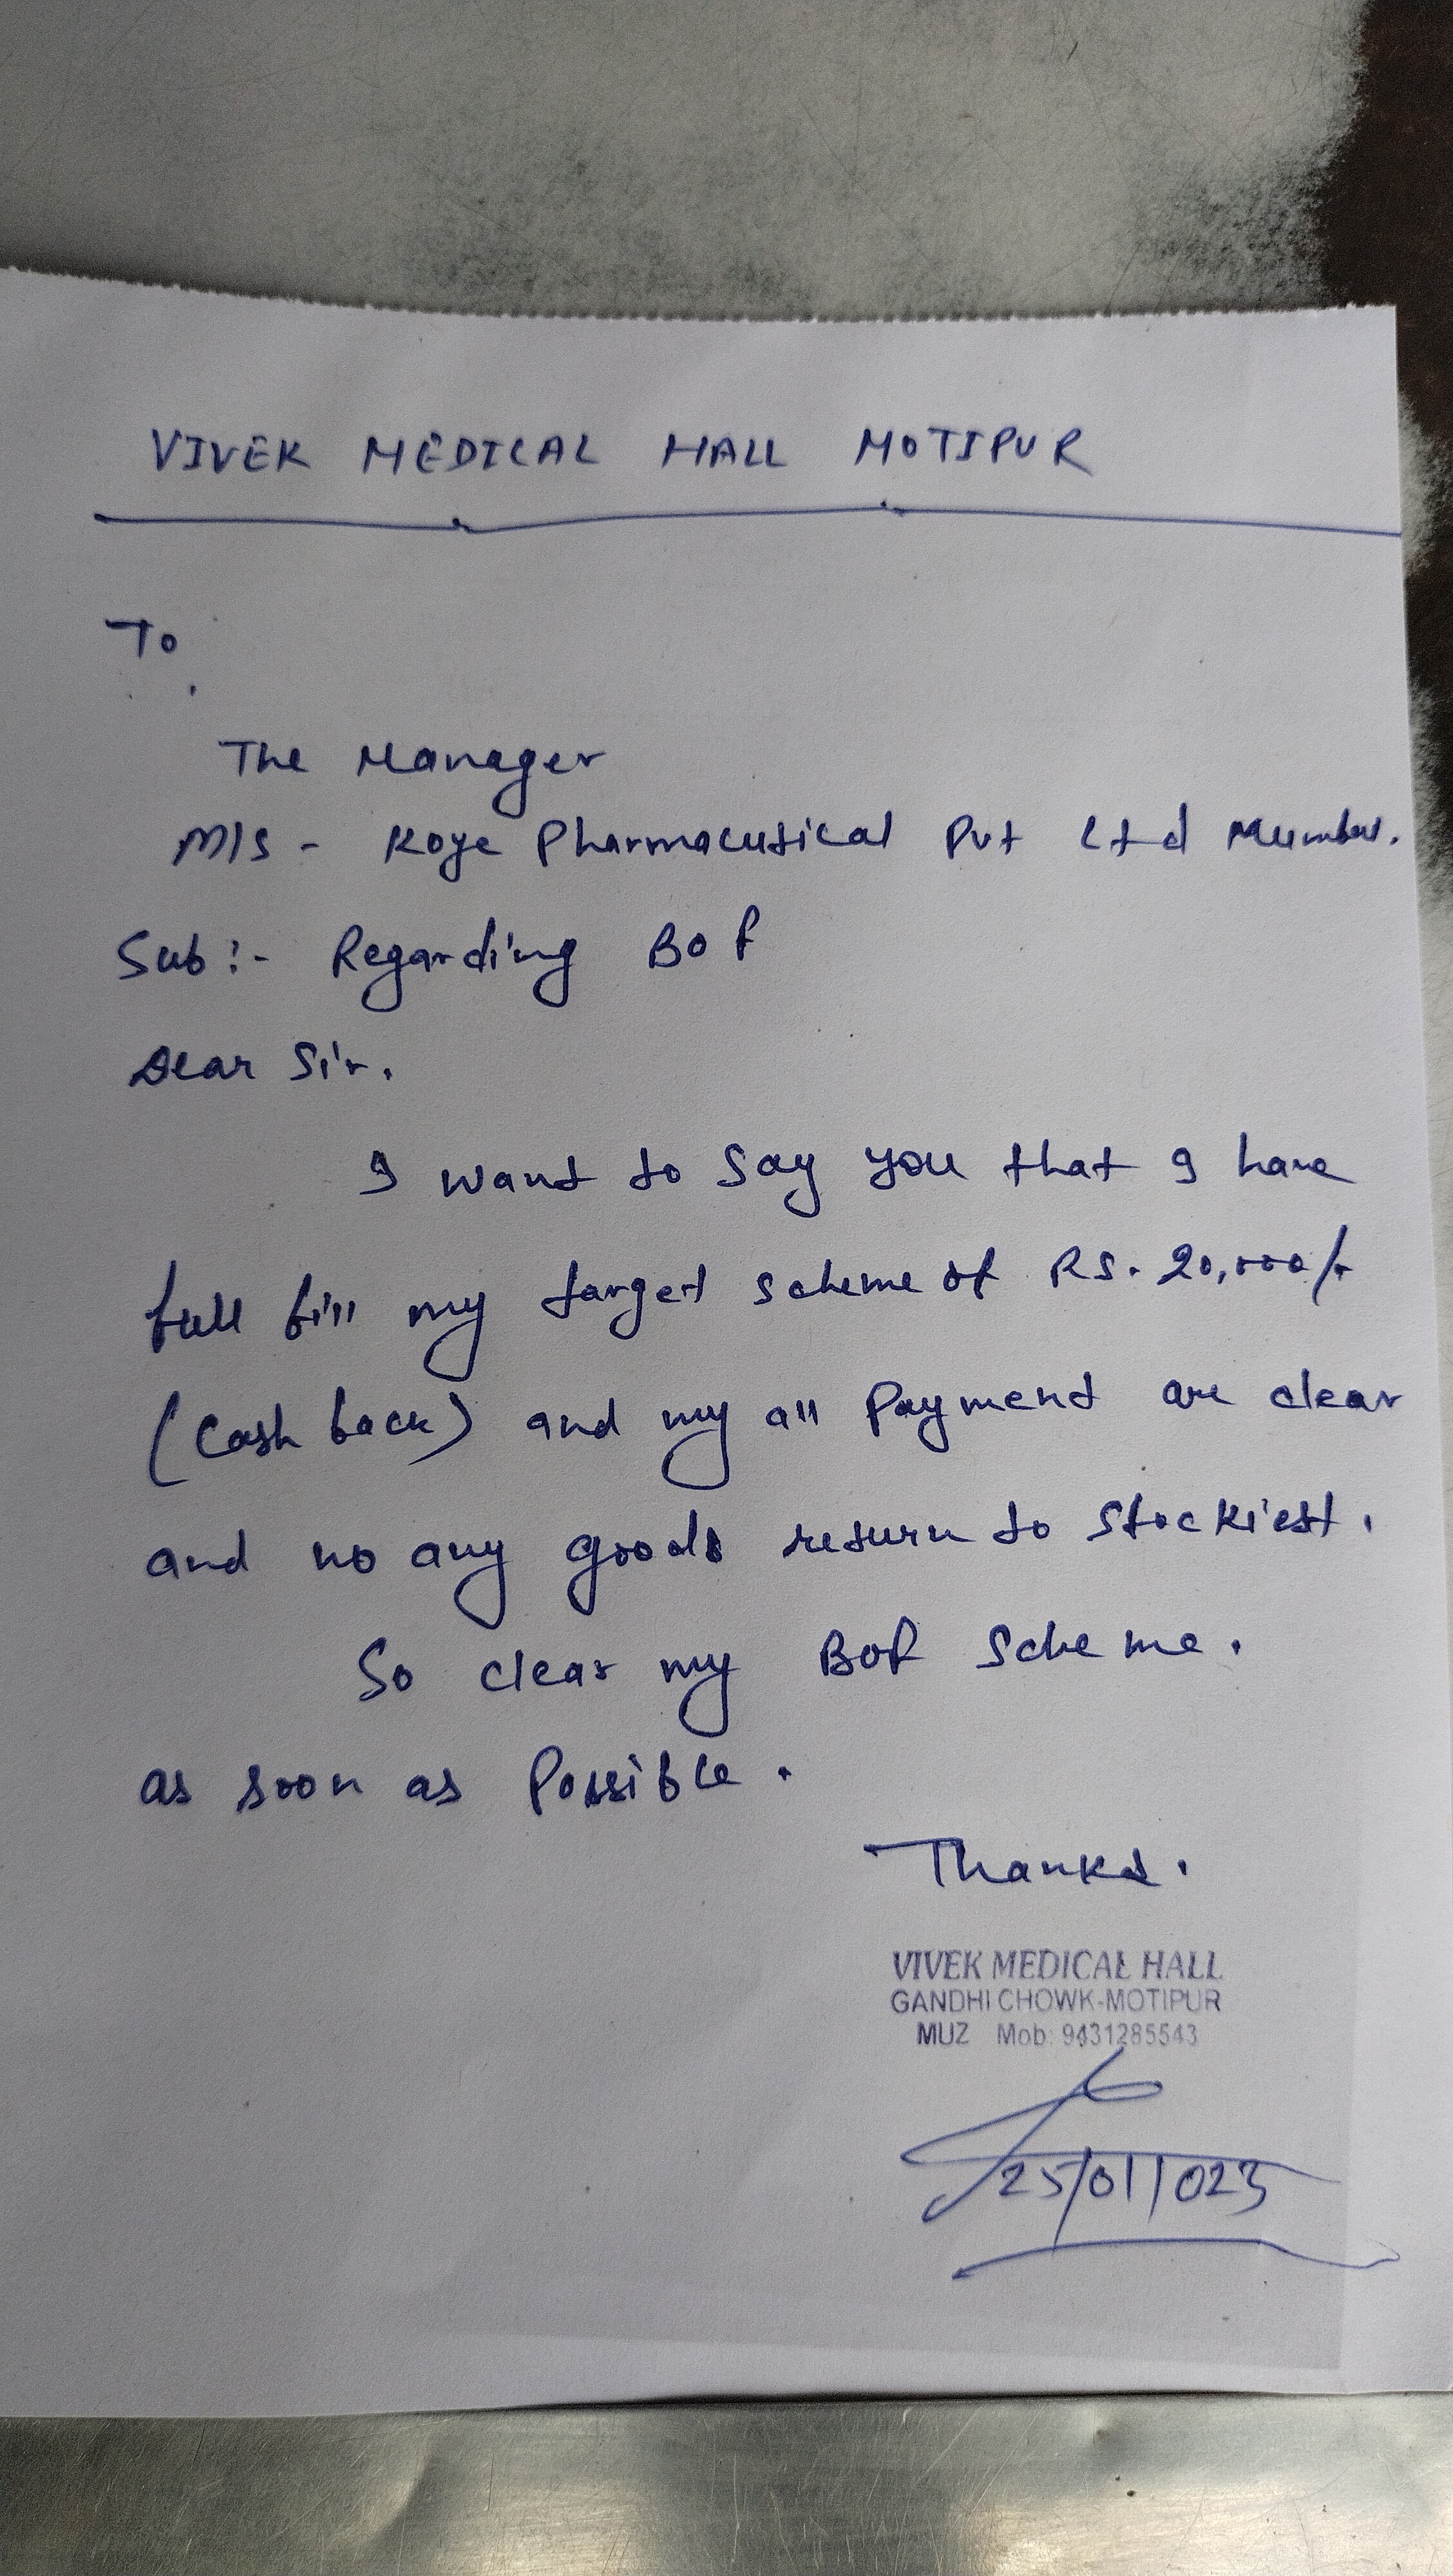 VIVEK MEDICAL HALL MOTIPUR
To
The Manager
M/S - Koye Pharmacutical Pvt Ltd Mumbai.
Sub:- Regarding BOP
Dear Sir.
I want to say you that I have
full fill my target scheme of RS. 20,000/-
(Cash back) and my all Payment are clear
and no any goods return to Stockiest.
So clear my BOP Scheme.
as soon as Possible.
Thanks.
VIVEK MEDICAL HALL
GANDHI CHOWK-MOTIPUR
MUZ Mob: 9431285543
25/01/023